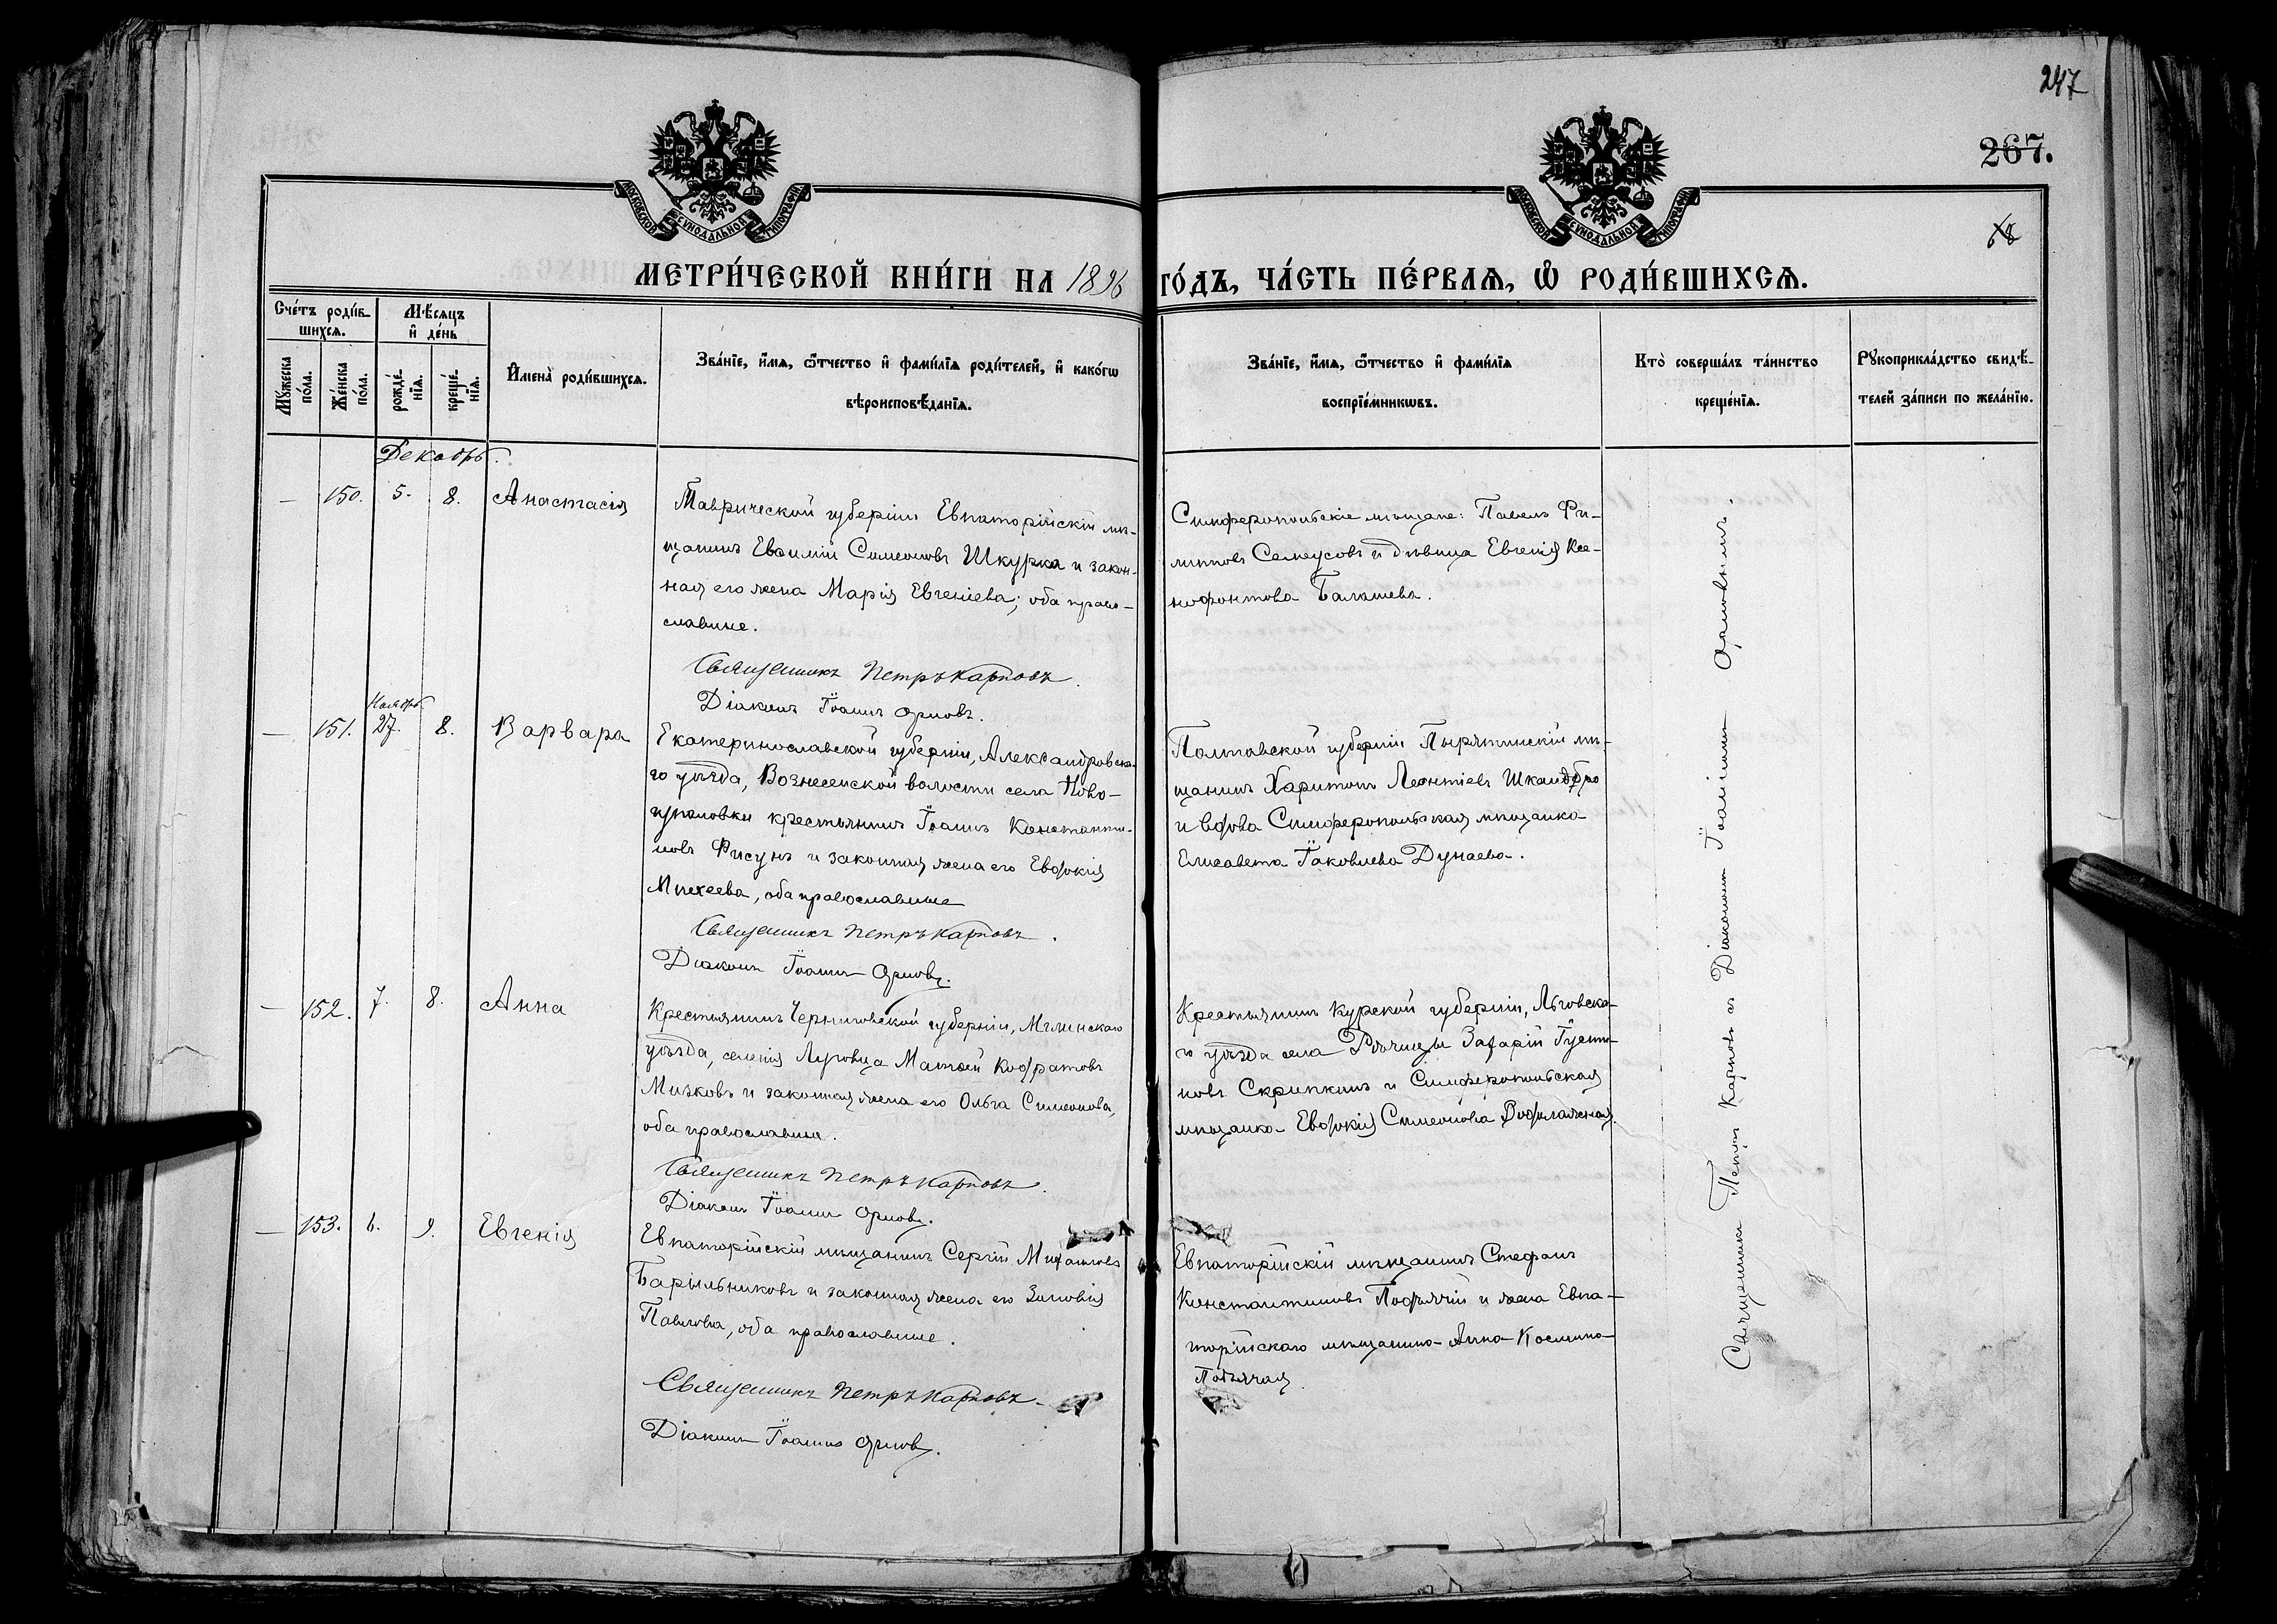 247
267.
68
МОСКОВСКОЙ СѴНОДАЛЬНОЙ ТИПОГРАФІИ
МОСКОВСКОЙ СѴНОДАЛЬНОЙ ТИПОГРАФІИ
МЕТРИ́ЧЕСКОЙ КНИ́ГИ НА 1896 ГО́ДЪ, ЧА́СТЬ ПЕ́РВАЯ, Ѡ҆ РОДИ́ВШИХСЯ.
Сче́тъ роди́в-
шихся.
Мꙋ́жеска
по́ла.
Же́нска
по́ла.
Мѣ́сяцъ
и҆ де́нь
рожде́-
нїя.
креще́-
нїя.
И҆мена̀ роди́вшихся.
Зва́нїе, и҆́мя, ѻ҆́тчество и҆ фами́лїя роди́телей, и҆ како́гѡ
вѣроисповѣ́данїя.
Зва́нїе, и҆́мя, ѻ҆́тчество и҆ фами́лїя
воспрїе́мникѡвъ.
Кто̀ соверша́лъ та́инство
креще́нїя.
Рꙋкоприкла́дство свидѣ́-
телей за́писи по жела́нїю.
Декабрь.
— 150. 5. 8. Анастасія
Таврической губерніи Евпаторійскій мѣ-
щанинъ Евѳимій Симеоновъ Шкурка и закон-
ная его жена Марія Евгеніева; оба право-
славные.
Священникъ Петръ Карповъ.
Діаконъ Іоаннъ Орловъ.
Симферопольскіе мѣщане: Павелъ Фи-
липповъ Семеусовъ и дѣвица Евгенія Ксе-
нофонтова Балашева.
Ноябрь
— 151. 27. 8. Варвара
Екатеринославской губерніи, Александровска-
го уѣзда, Вознесенской волости села Ново-
гупаловки крестьянинъ Іоаннъ Константи-
новъ Фисунъ и законная жена его Евдокія
Михеева, оба православные
Священникъ Петръ Карповъ.
Діаконъ Іоаннъ Орловъ.
Полтавской губерніи Пырятинскій мѣ-
щанинъ Харитонъ Леонтіевъ
и вдова Симферопольская мѣщанка
Елисавета Іаковлева Дунаева.
— 152. 7. 8. Анна
Крестьянинъ Черниговской губерніи, Мглинскаго
уѣзда, селенія Луговца Матѳей Кодратовъ
Мизковъ и законная жена его Ольга Симеонова,
оба православные.
Священникъ Петръ Карповъ.
Діаконъ Іоаннъ Орловъ.
Крестьянинъ Курской губерніи, Льговска-
го уѣзда села Рѣчицы Захарій Іусти-
новъ Скрипкинъ и Симферопольская
мѣщанка Евдокія Симеонова
— 153. 6. 9. Евгенія
Евпаторійскій мѣщанинъ Сергій Михаиловъ
Барильниковъ и законная жена его Зиновія
Павлова, оба православные.
Священникъ Петръ Карповъ.
Діаконъ Іоаннъ Орловъ.
Евпаторійскій мѣщанинъ Стефанъ
Константиновъ Подъячій и жена Евпа-
торійскаго мѣщанина Анна Космина
Подъячая.
Священникъ Петръ Карповъ съ Діакономъ Іоанномъ Орловымъ.